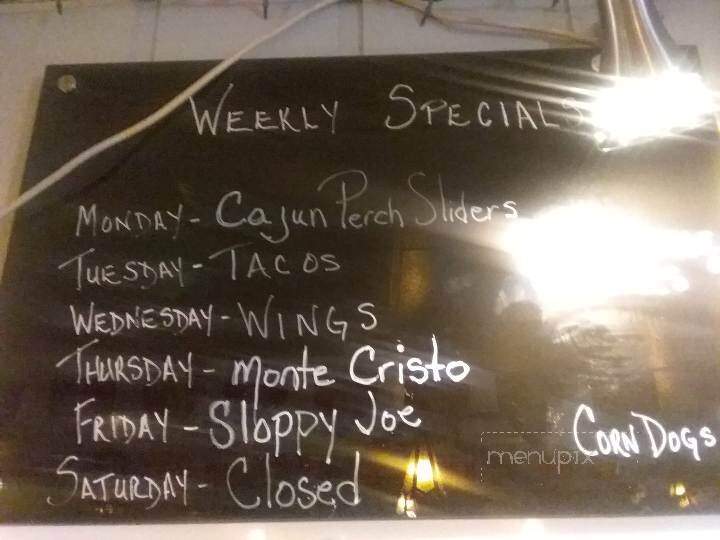 WEEKLY SPECIALS
MONDAY - Cajun Perch Sliders
TUESDAY - TACOS
WEDNESDAY - WINGS
THURSDAY - Monte Cristo
FRIDAY - Sloppy Joe
CORN DOGS
menupix
SATURDAY - Closed